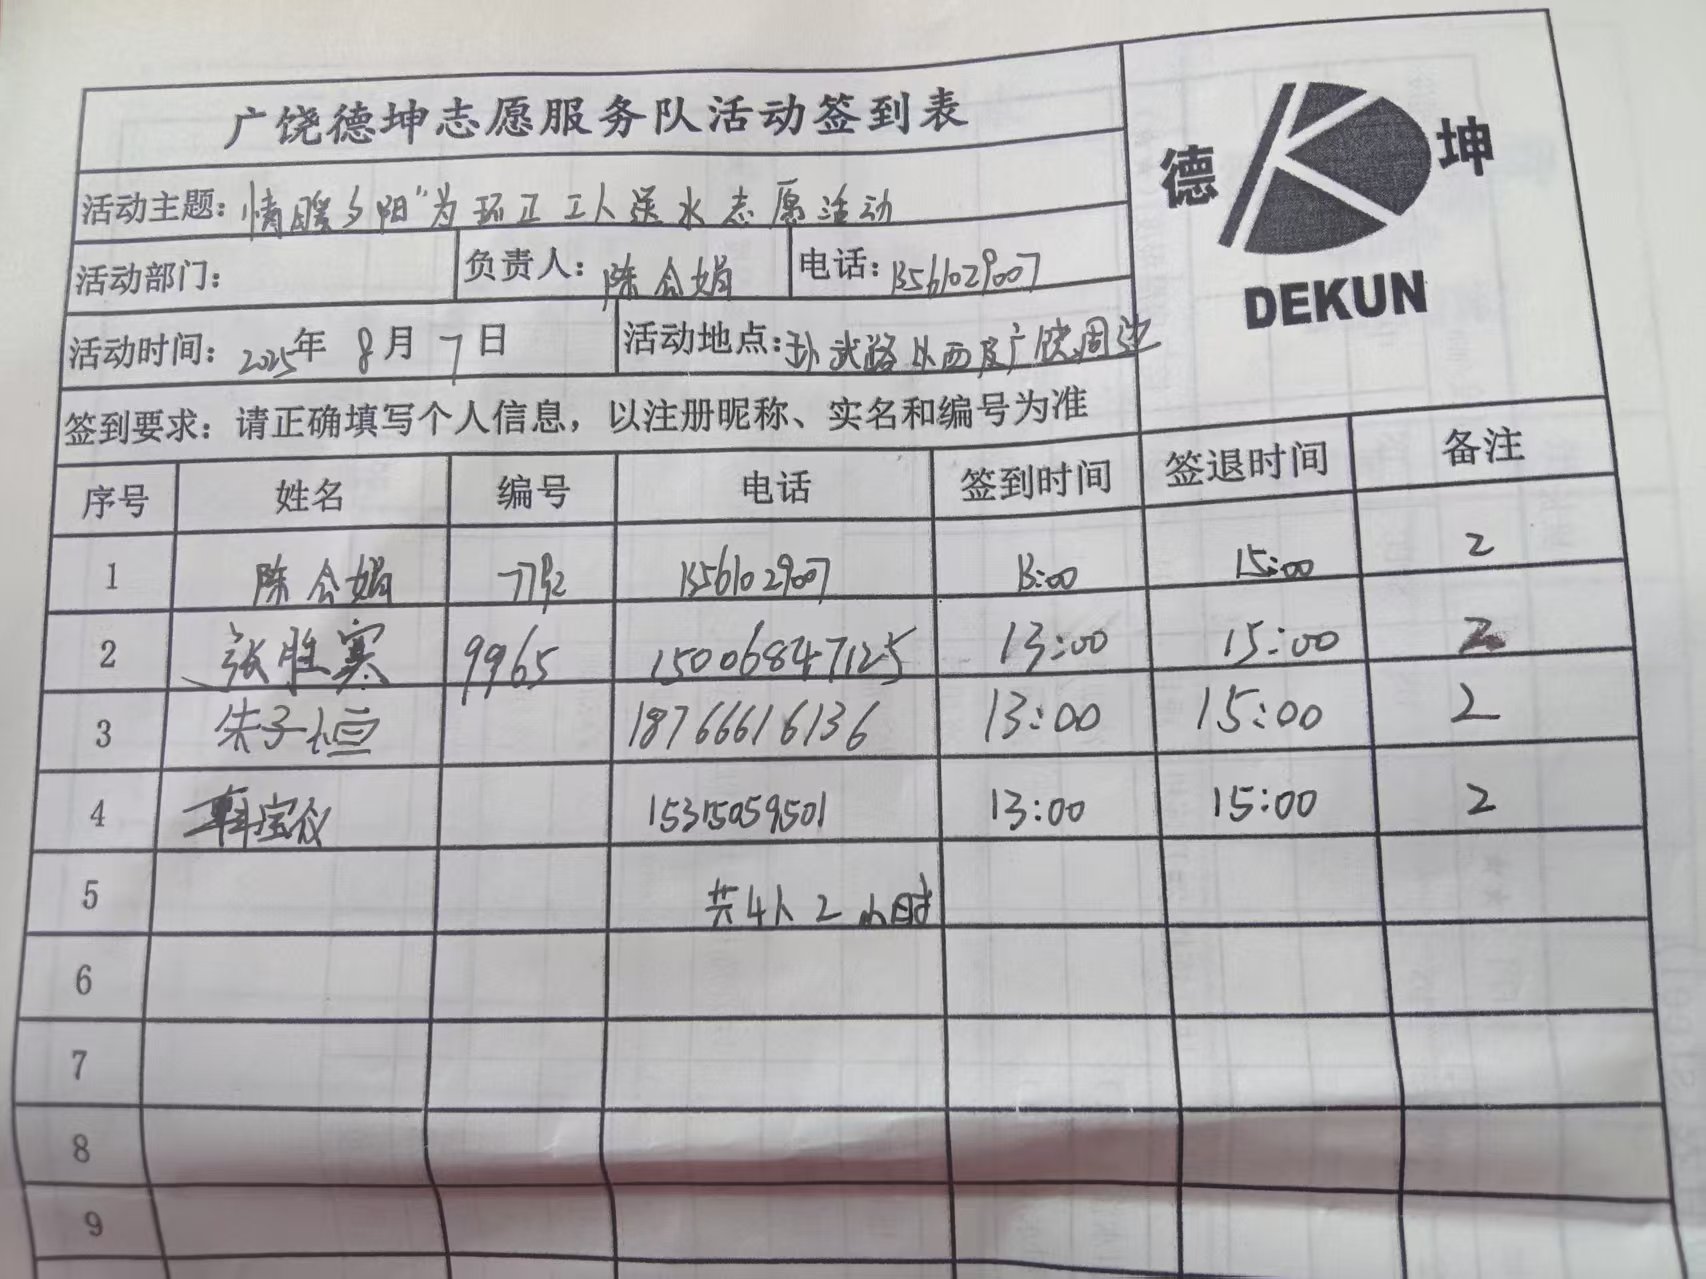 广饶德坤志愿服务队活动签到表
德 坤
DEKUN
活动主题: 情暖夕阳"为环卫工人送水志愿活动
活动部门: 负责人: 陈会娟 电话: 13561029007
活动时间: 2025年 8月 7日 活动地点: 孙武路以西及广饶周边
签到要求: 请正确填写个人信息，以注册昵称、实名和编号为准
序号 姓名 编号 电话 签到时间 签退时间 备注
1 陈会娟 13561029007 13:00 15:00 2
2 张胜寅 9965 15006847125 13:00 15:00 2
3 朱子恒 18766616136 13:00 15:00 2
4 韩宝仪 15315059501 13:00 15:00 2
5 共4人 2小时
6
7
8
9